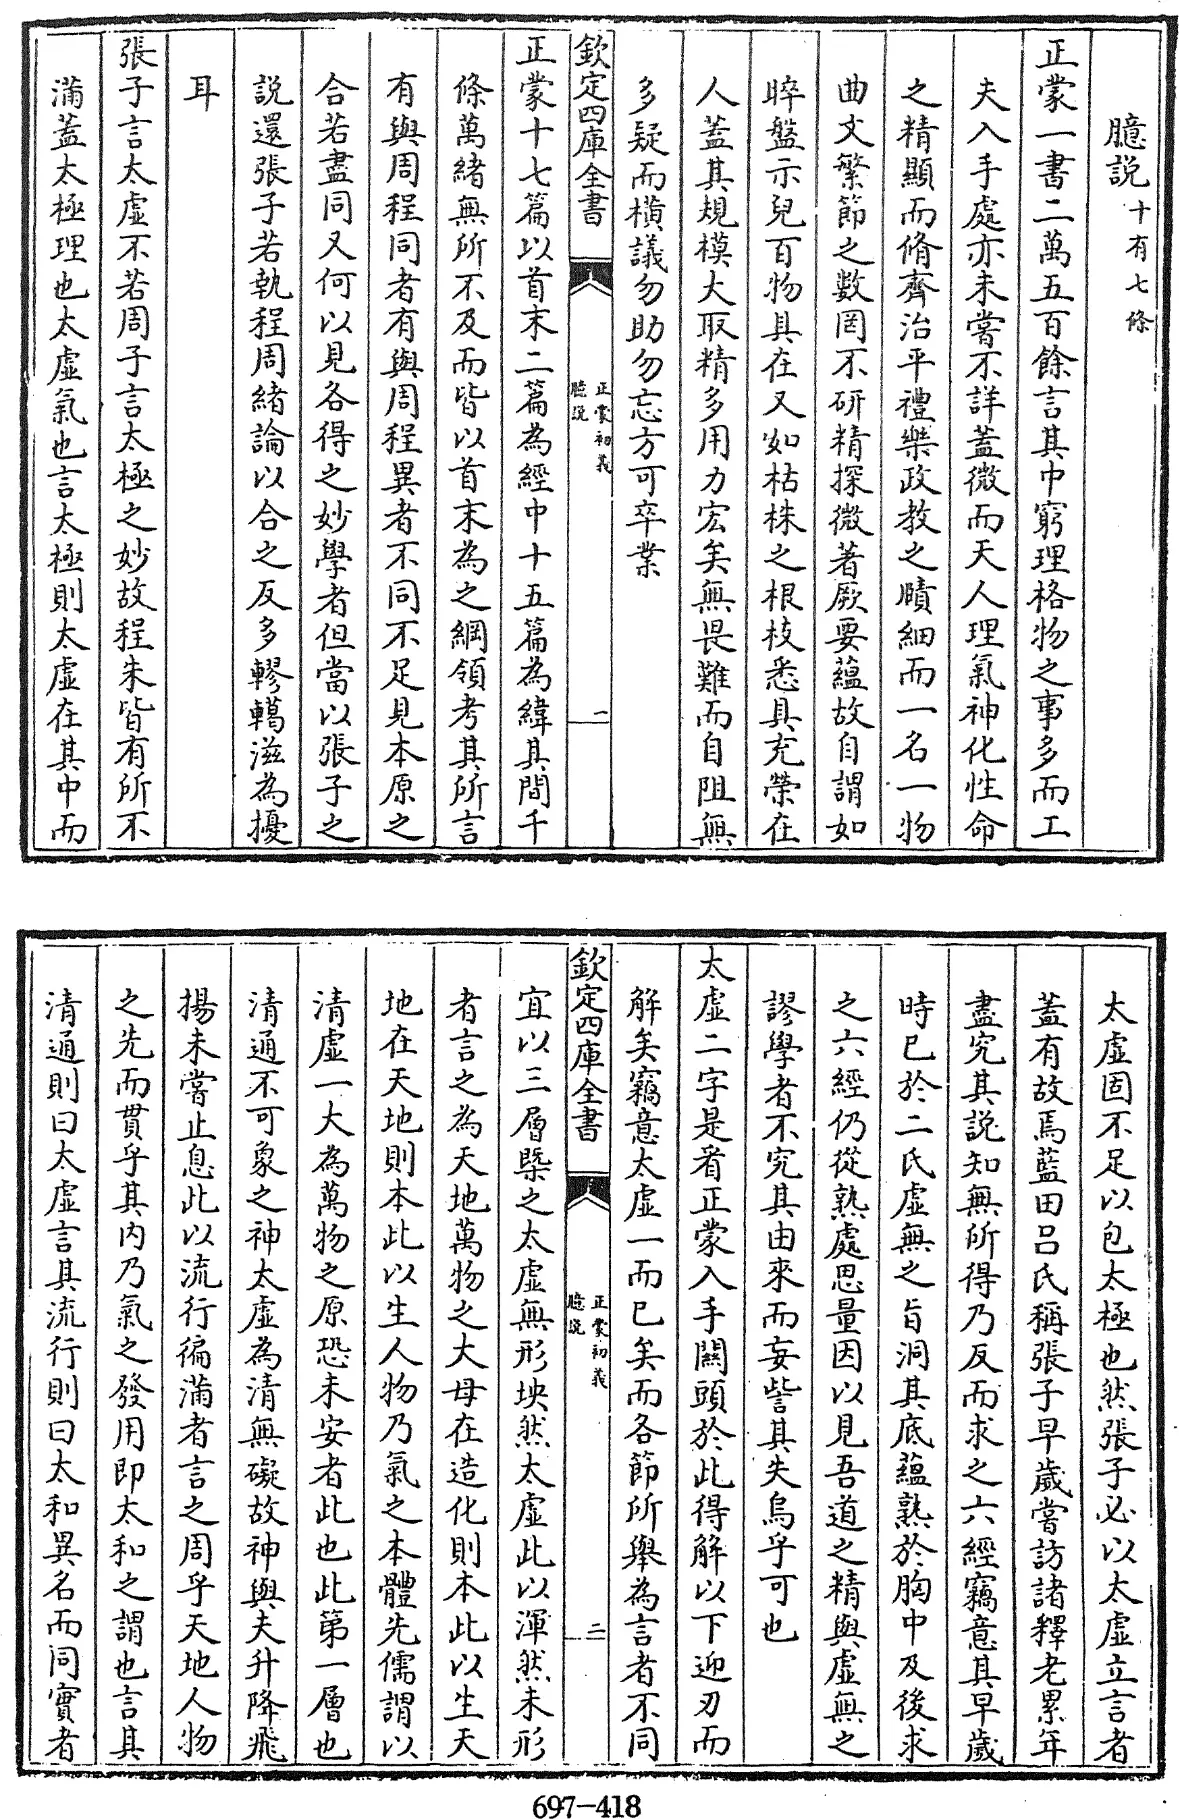 臆説十有七條
正蒙一書二萬五百餘言其中窮理格物之事多而工
夫入手處亦未嘗不詳蓋微而天人理氣神化性命
之精顯而脩齊治平禮樂政教之賾細而一名一物
曲文繁節之數罔不研精探微著厥要蘊故自謂如
晬盤示兒百物具在又如枯株之根枝悉具充榮在
人蓋其規模大取精多用力宏矣無畏難而自阻無
多疑而橫議勿助勿忘方可卒業
欽定四庫全書
正蒙初義
臆説
一
正蒙十七篇以首末二篇為經中十五篇為緯其間千
條萬緒無所不及而皆以首末為之綱領考其所言
有與周程同者有與周程異者不同不足見本原之
合若盡同又何以見各得之妙學者但當以張子之
説還張子若執程周緒論以合之反多轇轕滋為擾
耳
張子言太虛不若周子言太極之妙故程朱皆有所不
滿蓋太極理也太虛氣也言太極則太虛在其中而
太虛固不足以包太極也然張子必以太虛立言者
蓋有故焉藍田呂氏稱張子早歲嘗訪諸釋老累年
盡究其說知無所得乃反而求之六經竊意其早歲
時已於二氏虛無之旨洞其底蘊熟於胸中及後求
之六經仍從熟處思量因以見吾道之精與虛無之
謬學者不究其由來而妄訾其失烏乎可也
太虛二字是看正蒙入手關頭於此得解以下迎刃而
解矣竊意太虛一而已矣而各節所舉為言者不同
欽定四庫全書
正蒙初義
臆説
二
宜以三層槩之太虛無形坱然太虛此以渾然未形
者言之為天地萬物之大母在造化則本此以生天
地在天地則本此以生人物乃氣之本體先儒謂以
清虛一大為萬物之原恐未安者此也此第一層也
清通不可象之神太虛為清無礙故神與夫升降飛
揚未嘗止息此以流行徧滿者言之周乎天地人物
之先而貫乎其内乃氣之發用即太和之謂也言其
清通則曰太虛言其流行則曰太和異名而同實者
697-418